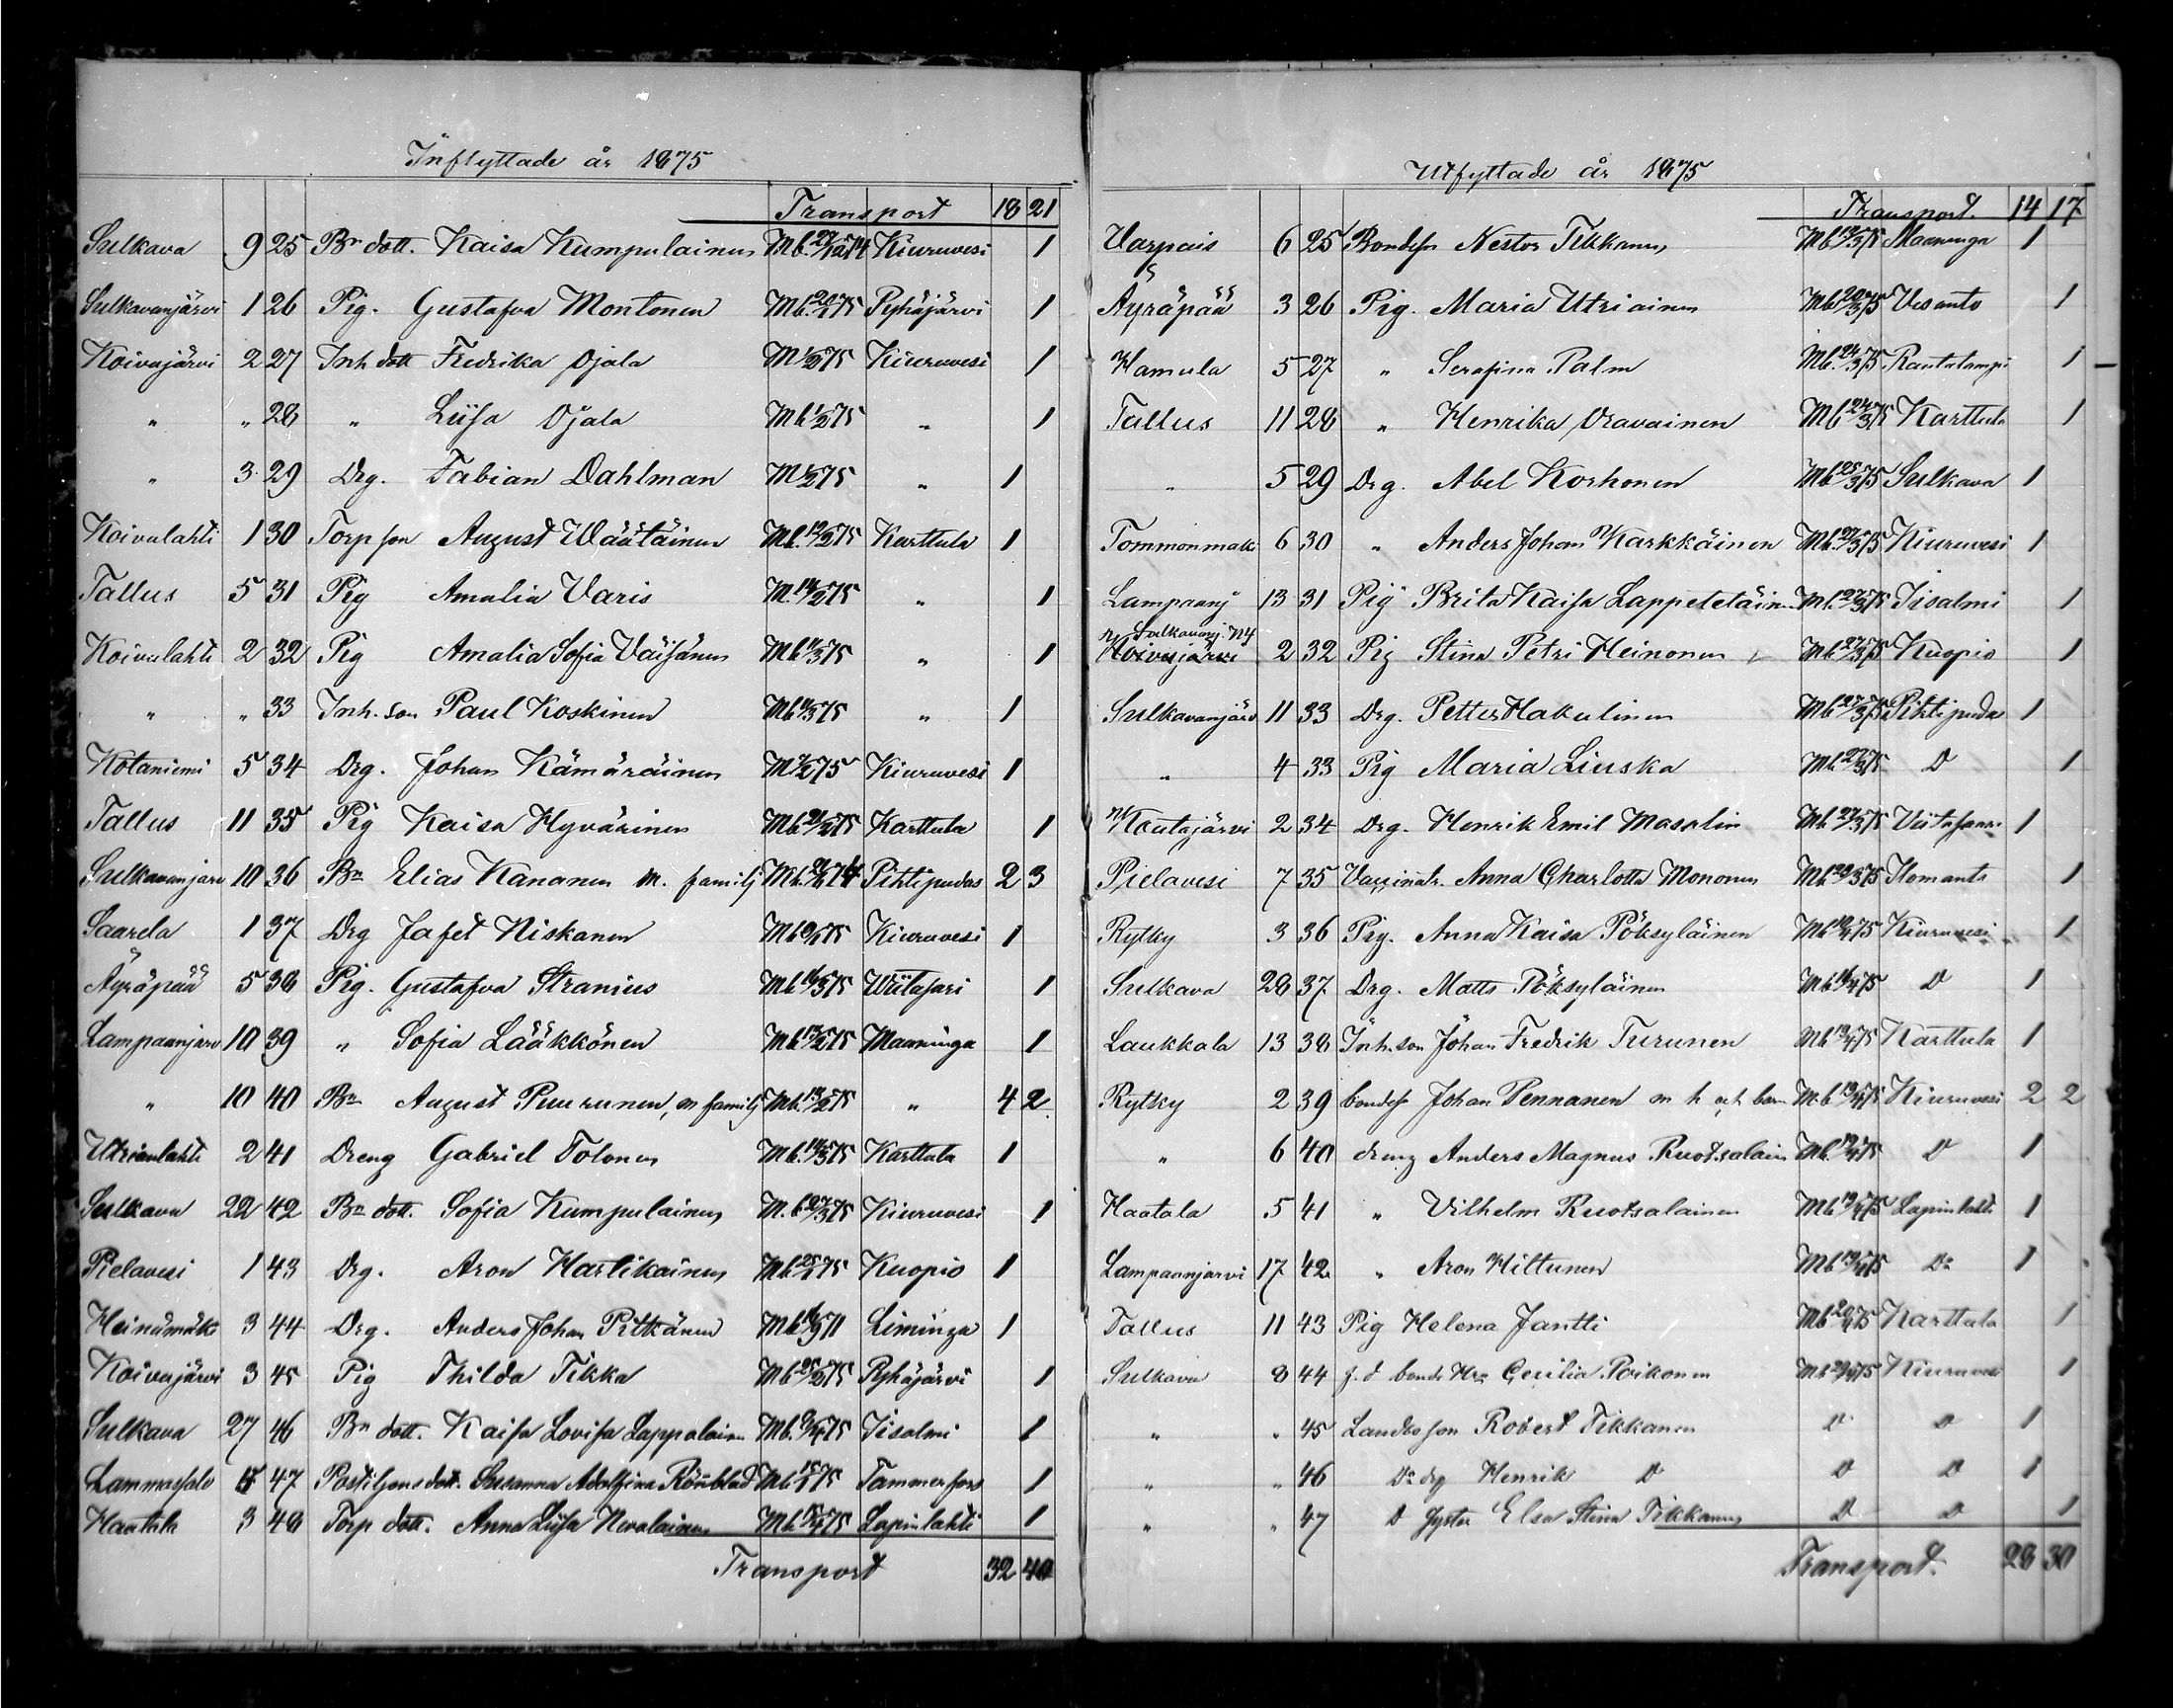 Inflyttade år 1875
Transport 18 21
Sulkava 9 25 Bn dott. Kaisa Kumpulainen Mb. 27/12 74 Kiuruvesi 1
Sulkavanjärvi 1 26 Pig. Gustafva Montonen Mb. 75 Pyhäjärvi 1
Koivujärvi 2 27 Inh dott Fredrika Ojala M 1/2 75 Kiuruvesi 1
" " 28 " Liisa Ojala Mb 1/2 75 " 1
" 3 29 Drg. Fabian Dahlman M 1/2 75 " 1
Koivulahti 1 30 Torp son August Wäätäinen Mb. 12/2 75 Karttula 1
Tallus 5 31 Pig Amalia Varis M. 14/2 75 " 1
Koivulahti 2 32 Pig Amalia Sofia Väisänen Mb 75 " 1
" " 33 Inh. son Paul Koskinen Mb 75 " 1
Kotaniemi 5 34 Drg. Johan Kämäräinen M 75 Kiuruvesi 1
Tallus 11 35 Pig Kaisa Hyvärinen Mb 75 Karttula 1
Sulkavanjärv 10 36 Bn Elias Kananen m. familj Mb. 74 Pihtipudas 2 3
Saarela 1 37 Drg Jafet Niskanen Mb 75 Kiuruvesi 1
Äyräpää 5 38 Pig. Gustafva Stranius Mb 16/3 75 Wiitasari 1
Lampaanjärv 10 39 " Sofia Lääkkönen Mb 13/2 75 Maaninga 1
" 10 40 Bn August Puurunen, m familj Mb. 13/2 75 " 4 2
Utrianlahti 2 41 Dreng Gabriel Tolonen Mb. 14/3 75 Karttula 1
Sulkava 22 42 Bn dott. Sofia Kumpulainen M. b 27/3 75 Kiuruvesi 1
Pielavesi 1 43 Drg. Aron Hartikainen Mb 75 Kuopio 1
Heinämäki 3 44 Drg. Anders Johan Pitkänen Mb 71 Liminga 1
Koivujärvi 3 45 Pig Thilda Tikka Mb 75 Pyhäjärvi 1
Sulkava 27 46 Bn dott. Kaisa Lovisa Lappalainen Mb. 75 Iisalmi 1
Lammassalo 47 Postiljons dott. Susanna Adolfina Rönnblad Mb 75 Tammerfors 1
Haatala 3 48 Torp dott. Anna Liisa Nevalainen Mb 75 Lapinlahti 1
Transport 32 40
Utflyttade år 1875
Transport. 14 17
Varpais 6 25 Bondes Nestor Tikkanen Mb 75 Maaninga 1
Äyräpää 3 26 Pig. Maria Utriainen Mb 20/3 75 Vesanto 1
Hamula 5 27 " Serafina Palm Mb. 24/3 75 Rautalampi 1
Tallus 11 28 " Henrika Oravainen Mb 24/3 75 Karttula 1
" 5 29 Drg. Abel Korhonen Mb 25/3 75 Sulkava 1
Tommonmäki 6 30 " Anders Johan Karkkäinen Mb. 27/3 75 Kiuruvesi 1
Lampaanj 13 31 Pig Brita Kaisa Lappeteläinen Mb. 27/3 75 Iisalmi 1
Sulkavanj. N4
Koivujärvi 2 32 Pig Stina Petri Heinonen Mb 27/3 75 Kuopio 1
Sulkavanjärv 11 33 Drg. Petter Hakulinen Mb 27/3 75 Pihtipudas 1
" 4 33 Pig Maria Liuska Mb. 27/3 75 D 1
Koutajärvi 2 34 Drg. Henrik Emil Masalin Mb 27/3 75 Viitasaari 1
Pielavesi 7 35 Vaccinatr. Anna Charlotta Mononen Mb 75 Ilomants 1
Rytky 3 36 Pig. Anna Kaisa Pöksyläinen Mb 75 Kiuruvesi 1
Sulkava 28 37 Drg. Matts Pöksyläinen Mb 75 D 1
Laukkala 13 38 Inh. son Johan Fredrik Turunen Mb 13/4 75 Karttula 1
Rytky 2 39 bondes Johan Pennanen m h och barn M. b 13/4 75 Kiuruvesi 2 2
" 6 40 dreng Anders Magnus Ruotsalain Mb. 75 D 1
Haatala 5 41 " Vilhelm Ruotsalainen Mb 75 Lapinlahti 1
Lampaanjärvi 17 42 " Aron Hiltunen Mb 75 Do 1
Tallus 11 43 Pig Helena Jantti Mb 20/4 75 Karttula 1
Sulkava 8 44 f. d bonde Hra Cecilia Roikonen Mb 75 Kiuruvesi 1
" " 45 Landbo son Robert Tikkanen D D 1
" " 46 Do drg Henrik D D D 1
" " 47 D syster Elsa Stina Tikkanen D D 1
Transport. 28 30